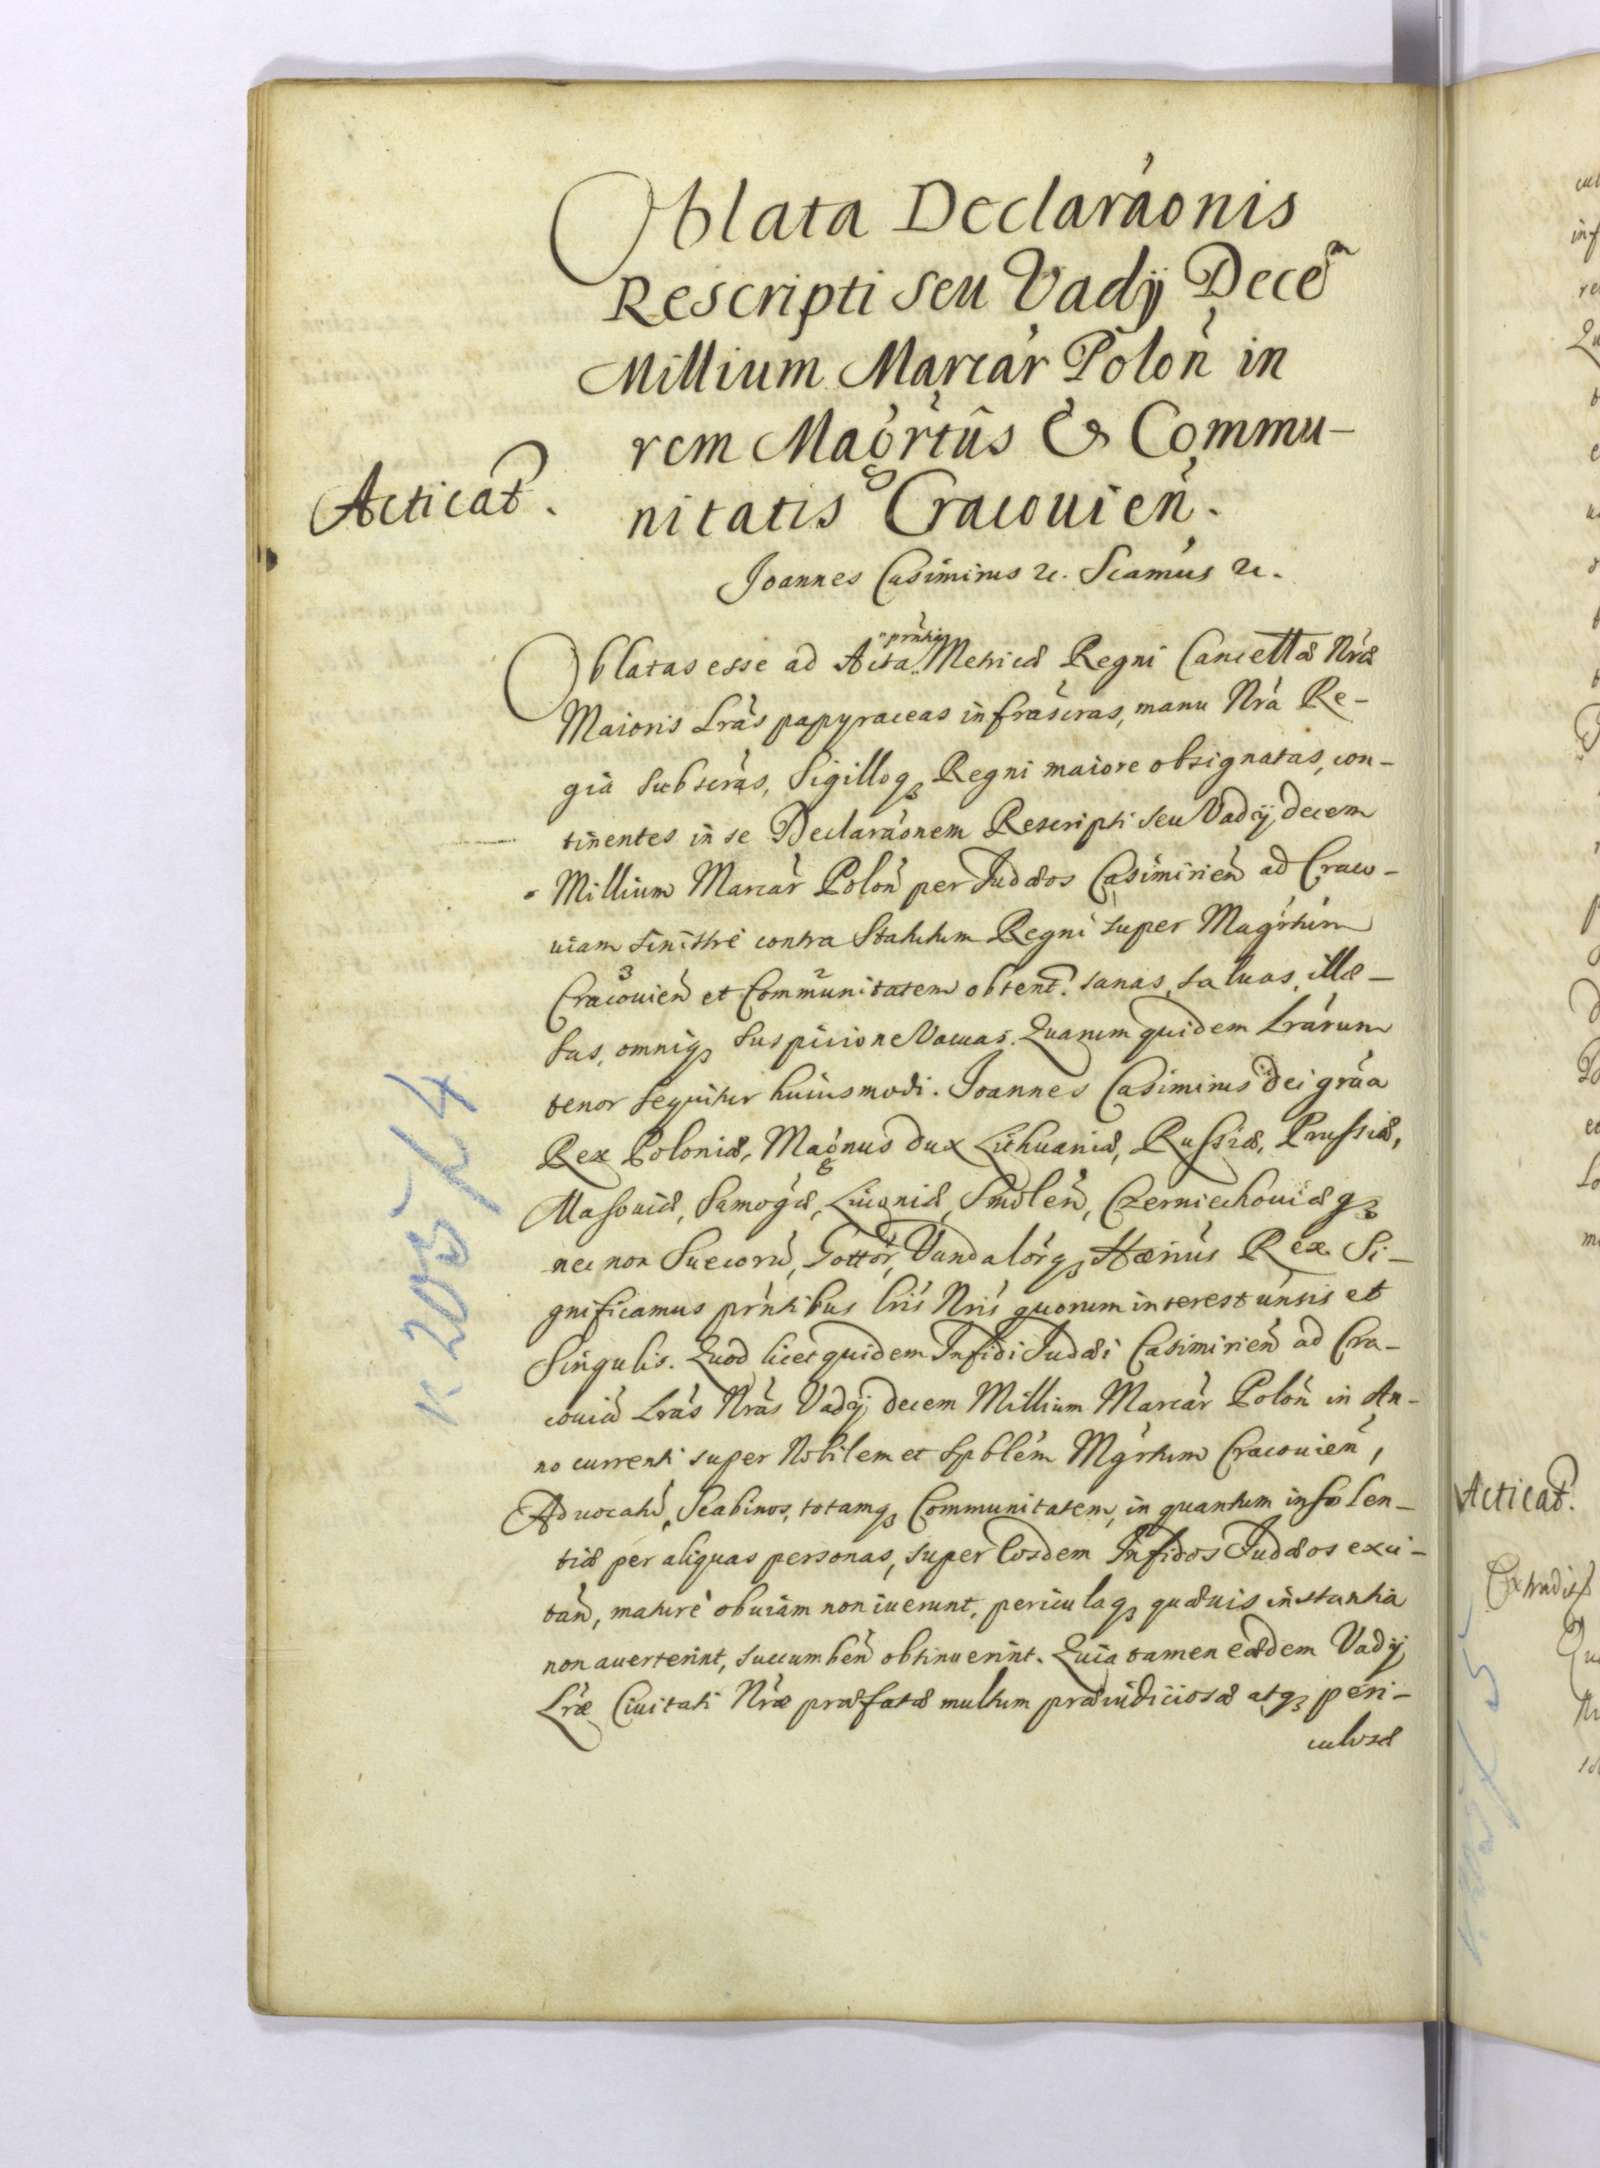 Oblata Declaraonis
Rescripti seu Vadÿ Decem
Millium Marcar Polon in
rem Magrtus & Commu-
nitatis Cracouien.
Acticat.
Joannes Casimirus &c. Scamus &c.
Oblatas esse ad Acta prntia Metricæ Regni Cancellæ Nræ
Maioris Lras papyraceas infrascras, manu Nra Re-
gia subscras, Sigilloq Regni maiore obsignatas, con-
tinentes in se Declaraonem Rescripti seu Vadÿ decem
Millium Marcar Polon per Judæos Casimirien ad Craco-
uiam sinistrè contra Statutum Regni super Magrtum
Cracouien et Communitatem obtent. sanas, saluas, illæ-
sas, omniq suspicione Vacuas. Quarum quidem Lrarum
tenor sequitur huiusmodi. Joannes Casimirus Dei graa
Rex Poloniæ, Magnus dux Lithuaniæ, Russiæ, Prussiæ,
Masouiæ, Samogæ, Liuoniæ, Smolen, Czerniechouiæq
nec non Suecoru, Gottor, Vandalorq Hærius Rex. Si-
gnificamus prntibus lris Nris quorum interest unsis et
Singulis. Quod licet quidem Infidi Judæi Casimirien ad Cra-
couia Lras Nras Vadÿ decem Millium Marcar Polon in An-
no currenti super Nobilem et Spblem Mgrtum Cracouien,
Aduocatu, Scabinos, totamq Communitatem, in quantum insolen-
tiæ per aliquas personas, super Eosdem Infidos Judæos exci-
tan, maturè obuiam non iuerunt, periculaq quæuis instantia
non auerterint, succumben obtinuerint. Quia tamen eædem Vadÿ
Lræ Ciuitati Nræ præfatæ multum præiudiciosæ atq peri-
culosæ
K 205 k 4
Acticat.